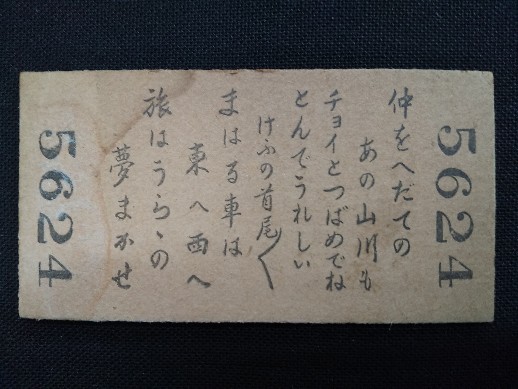 5624
仲をへだての
あの山川も
チョイとつばめでね
とんでうれしい
けふの首尾〱
まはる車は
東へ西へ
旅はうらゝの
夢まかせ
5624